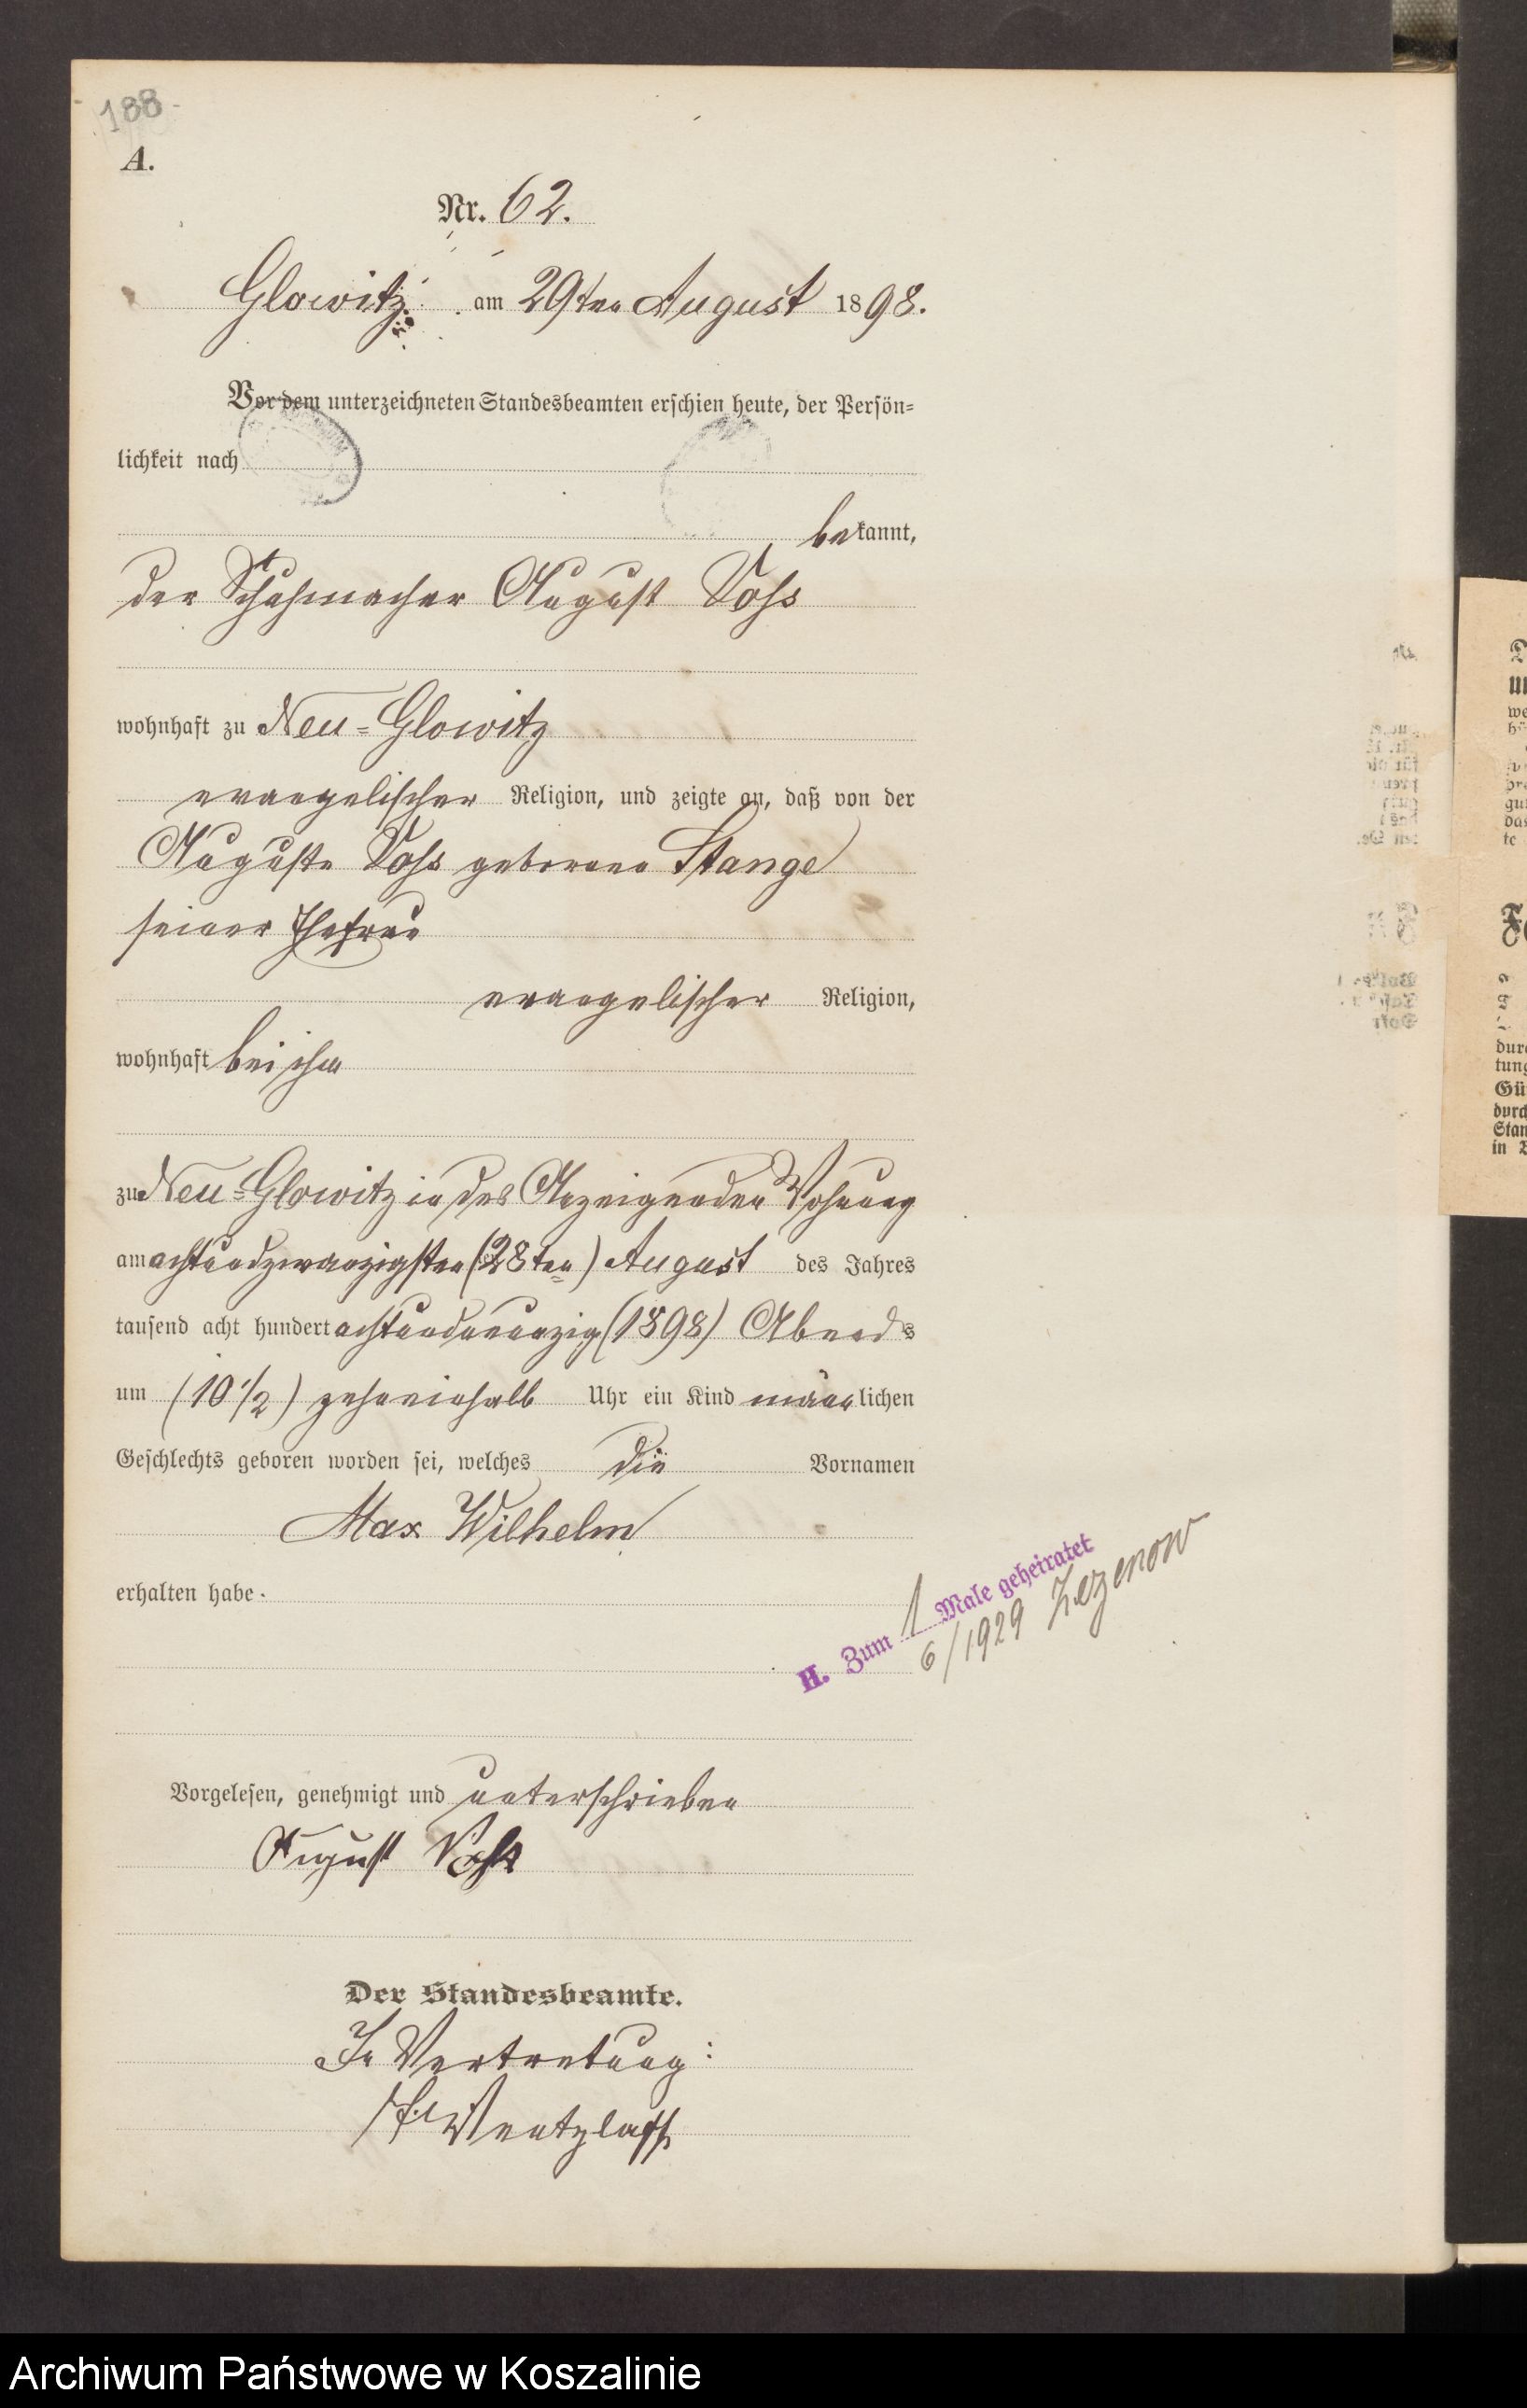 188.
A.
Nr. 62.
Glowitz am 29ten August 1898.
Vor dem unterzeichneten Standesbeamten erschien heute, der Persön=
lichkeit nach
bekannt,
der Schuhmacher August Voss
wohnhaft zu Neu=Glowitz
evangelischer Religion, und zeigte an, daß von der
Auguste Voss geborene Stange
seiner Ehefrau
evangelischer Religion,
wohnhaft bei ihm
zu Neu=Glowitz in des Anzeigenden Wohnung
am achtundzwanzigsten (28ten) August des Jahres
tausend acht hundert achtundneunzig (1898) Abends
um (10 1/2) zehneinhalb Uhr ein Kind männlichen
Geschlechts geboren worden sei, welches die Vornamen
Max Wilhelm
erhalten habe.
H. Zum 1 Male geheiratet
6/1929 Zezenow
Vorgelesen, genehmigt und unterschrieben
August Voss
Der Standesbeamte.
In Vertretung:
Wentzlaff
Archiwum Państwowe w Koszalinie